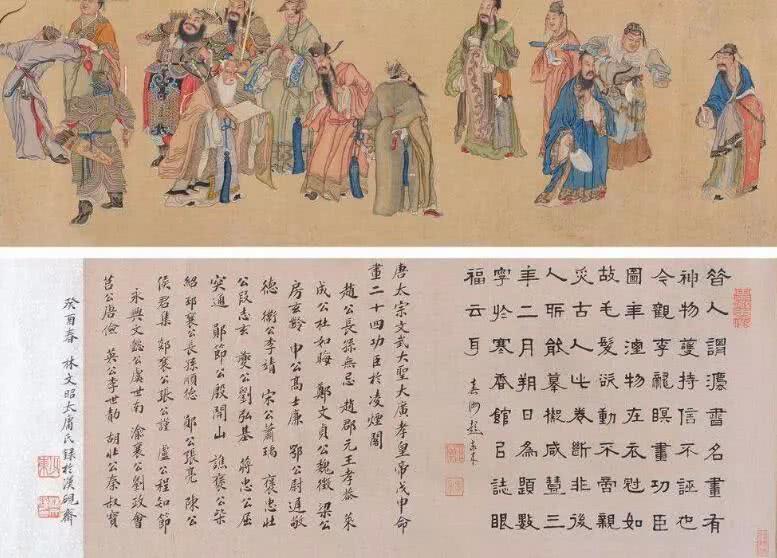 昔人謂灋書名畫有
神物護持信不誣也
今觀李龍瞑畫功臣
圖年湮物在衣冠如
故毛髮欲動不啻親
炙古人此卷斷非後
人所能摹擬咸豐三
年二月朔日為題數
字於寒香館㠯誌眼
福云耳 真州
唐太宗文武大聖大廣孝皇帝戊申命
畫二十四功臣於凌煙閣
趙公長孫無忌 趙郡元王孝恭 萊
成公杜如晦 鄭文貞公魏徵 梁公
房玄齡 申公高士廉 鄂公尉遲敬
德 衛公李靖 宋公蕭瑀 褒忠壯
公段志玄 夔公劉弘基 蔣忠公屈
突通 鄖節公殷開山 譙襄公柴
紹 邳襄公長孫順德 鄖公張亮 陳公
侯君集 郯襄公張公謹 盧公程知節
永興文懿公虞世南 渝襄公劉政會
莒公唐儉 英公李世勣 胡壯公秦叔寶
癸酉春 林文昭太庸氏錄於漢硯齋